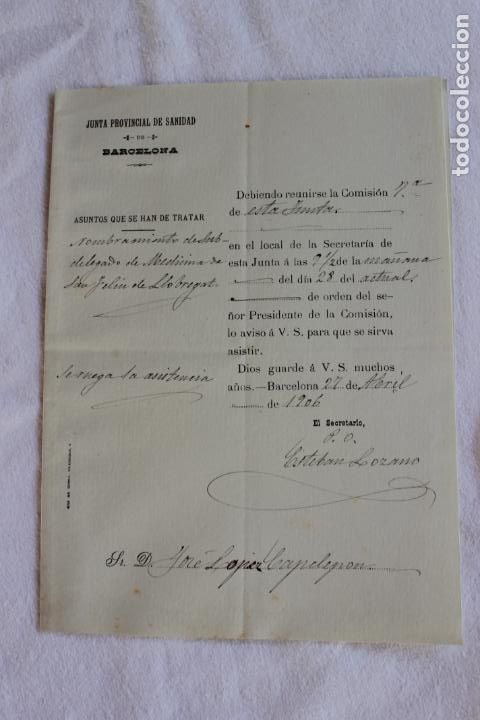 JUNTA PROVINCIAL DE SANIDAD
DE
BARCELONA
ASUNTOS QUE SE HAN DE TRATAR
Nombramiento de Sub-
delegado de Medicina de
San Feliu de Llobregat.
Se ruega la asistencia
Debiendo reunirse la Comisión 1ª
de esta Junta
en el local de la Secretaría de
esta Junta á las 9 1/2 de la mañana
del día 28 del actual,
de orden del se-
ñor Presidente de la Comisión,
lo aviso á V. S. para que se sirva
asistir.
Dios guarde á V. S. muchos
años.—Barcelona 27 de Abril
de 1906
El Secretario,
P. O.
Esteban Lozano
Sr. D. José López
todocoleccion